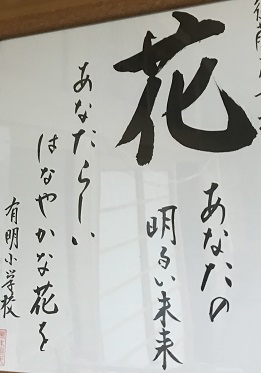 花
あなたの
明るい未来
あなたらしい
はなやかな花を
有明小学校